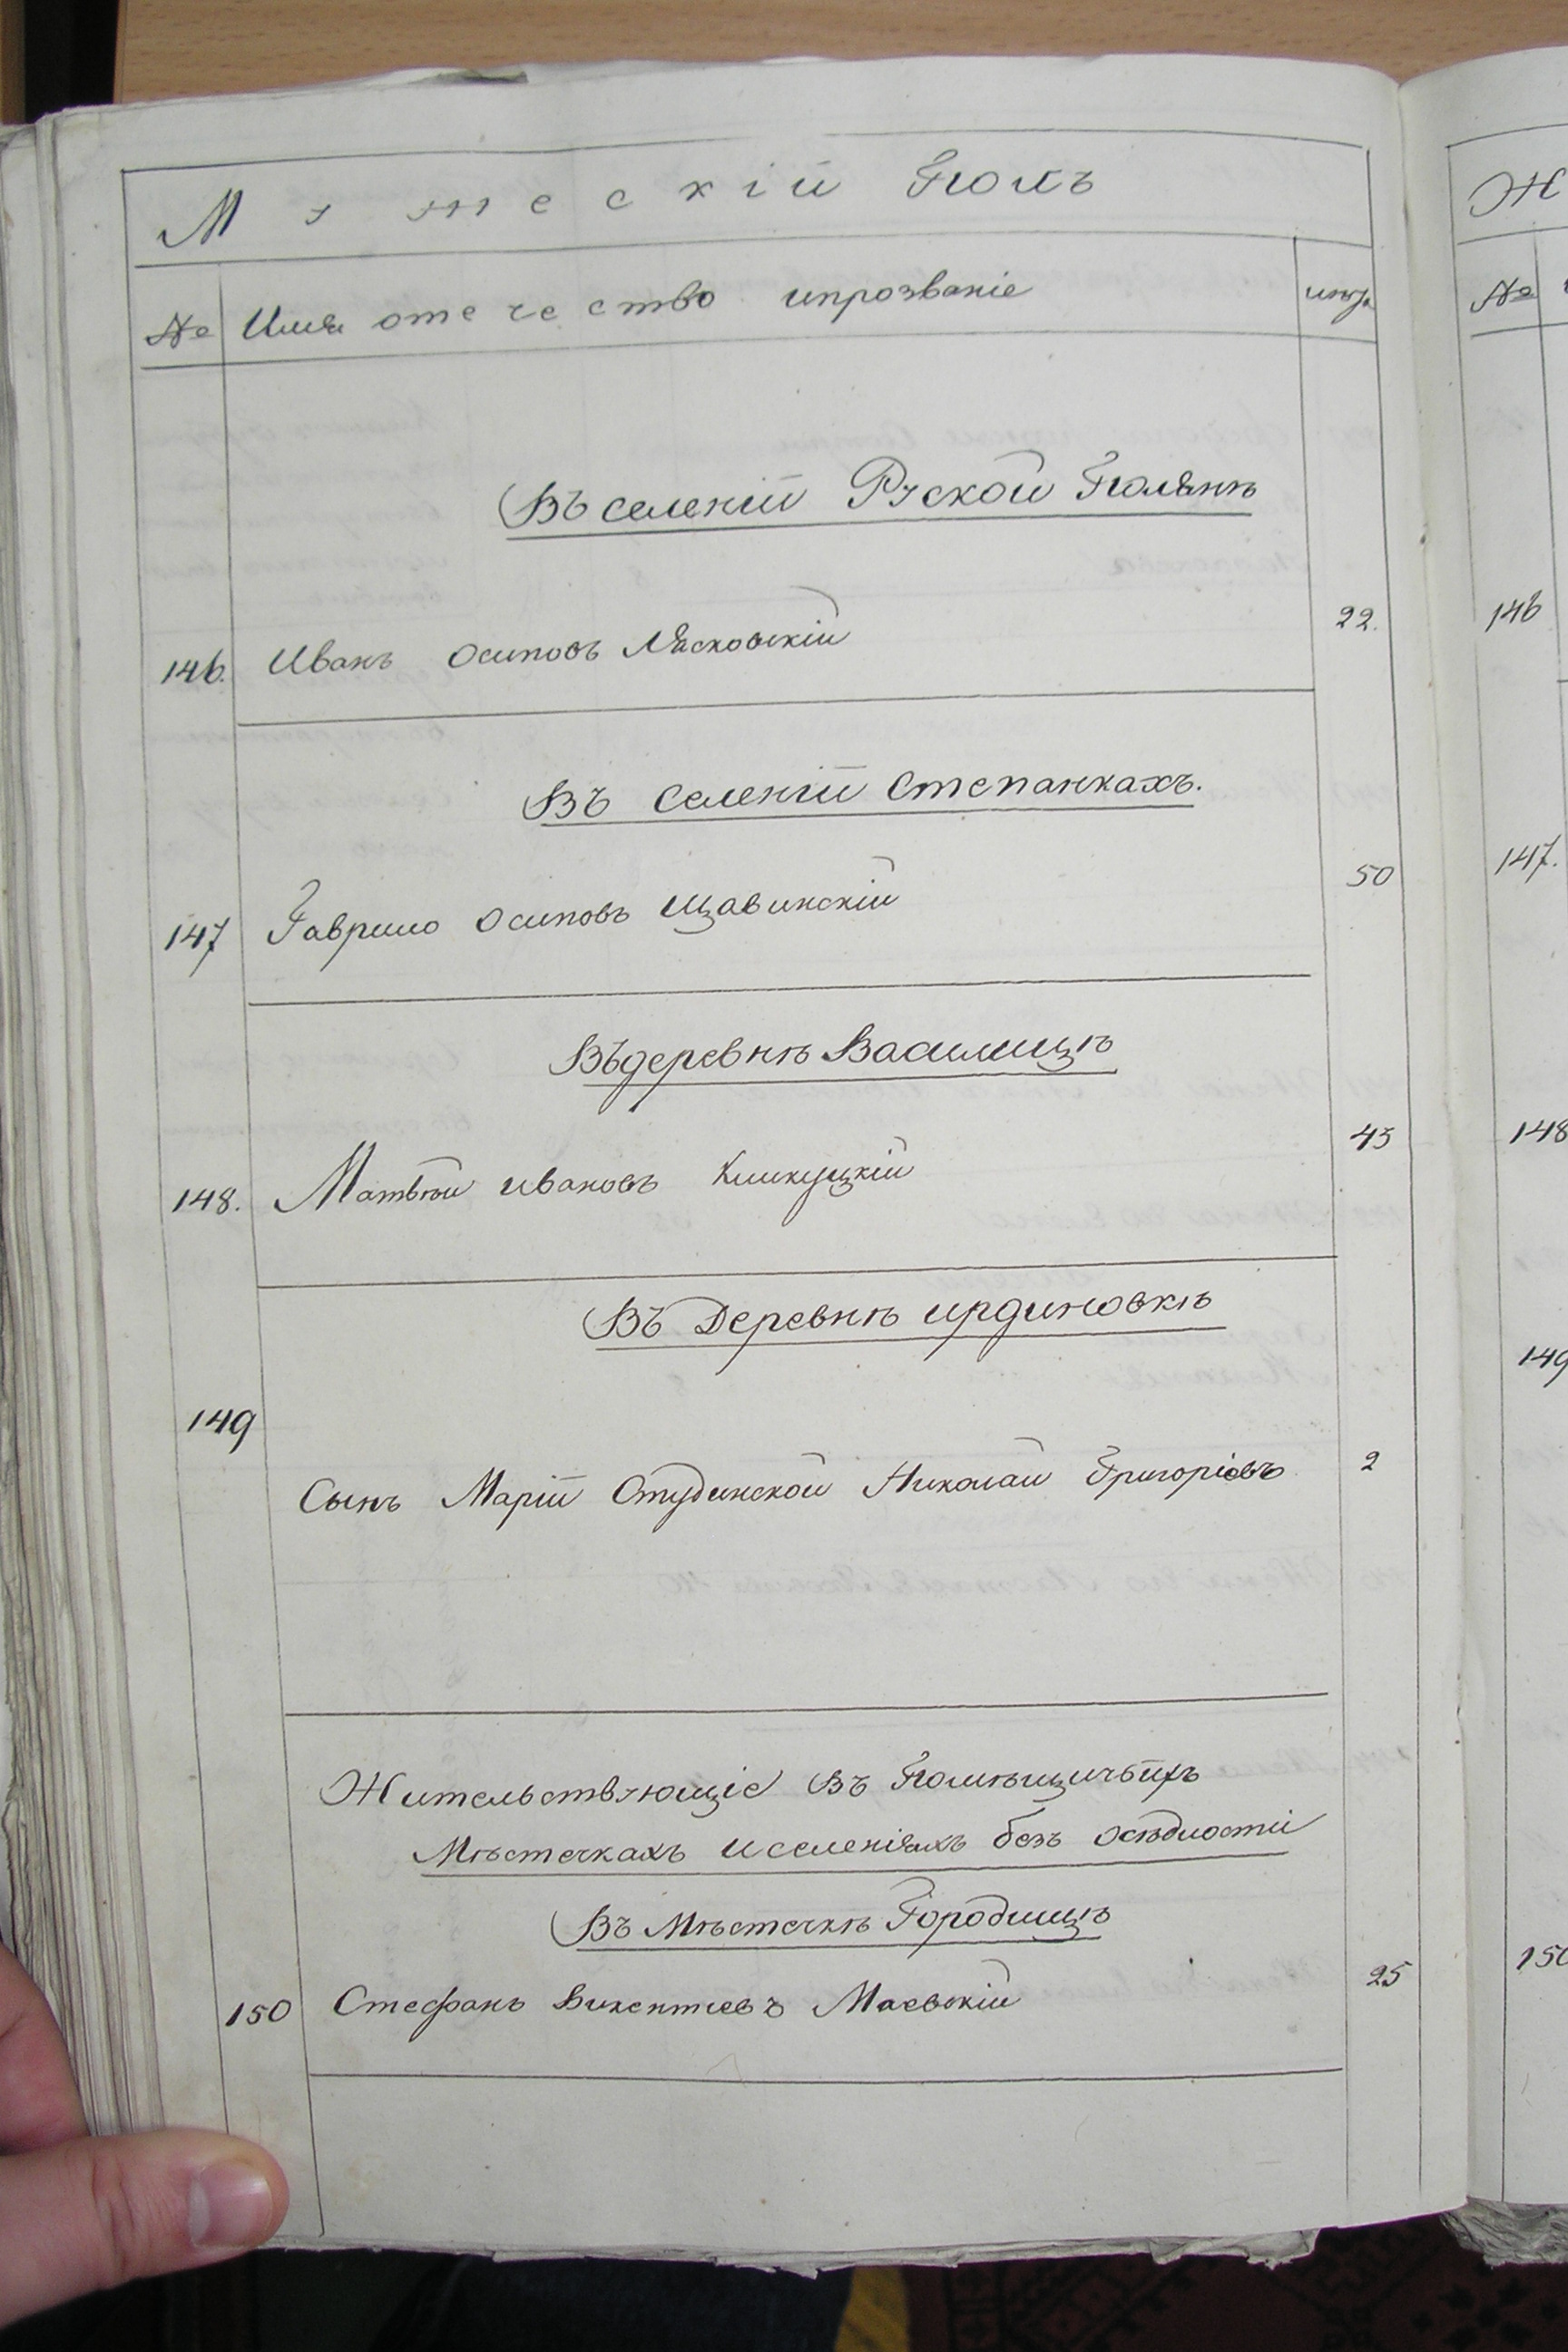 Мужескій Полъ
Ж
№ Имя отечество ипрозваніе
№
Въ селеніи Руской Полянѣ
146. Иванъ Осиповъ Лясковскій 22.
146
Въ Селеніи Степанкахъ.
147 Гаврило Осиповъ Щавинскій 50
147.
Въ деревнѣ Василицѣ
148. Матвѣй Ивановъ 43
148
Въ Деревнѣ Ирдиновкѣ
149
149
Сынъ Маріи Студинской Николай Григоріовъ 2
Жительствующіе въ Помѣщичьихъ
Мѣстечкахъ и селеніяхъ безъ осѣдлости
Въ Мѣстечкѣ Городищѣ
150 Стефанъ Викентіевъ Маевскій 25
150